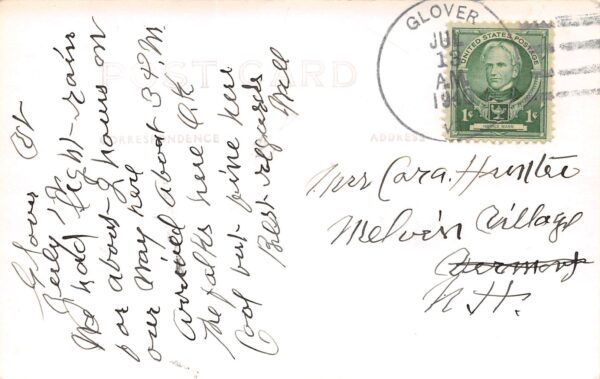 POST CARD
CORRESPONDENCE
ADDRESS
Glover Vt
July
We had light rain
for about 2 hours on
our way here
Arrived about 3 P.M
The folks here O.K
Cool but fine here
Best regards
Nell
GLOVER
JUL
13
AM
19
UNITED STATES POSTAGE
1¢ 1¢
HORACE MANN
Mrs Cara Hunter
Melvin Village
Vermont
N.H.